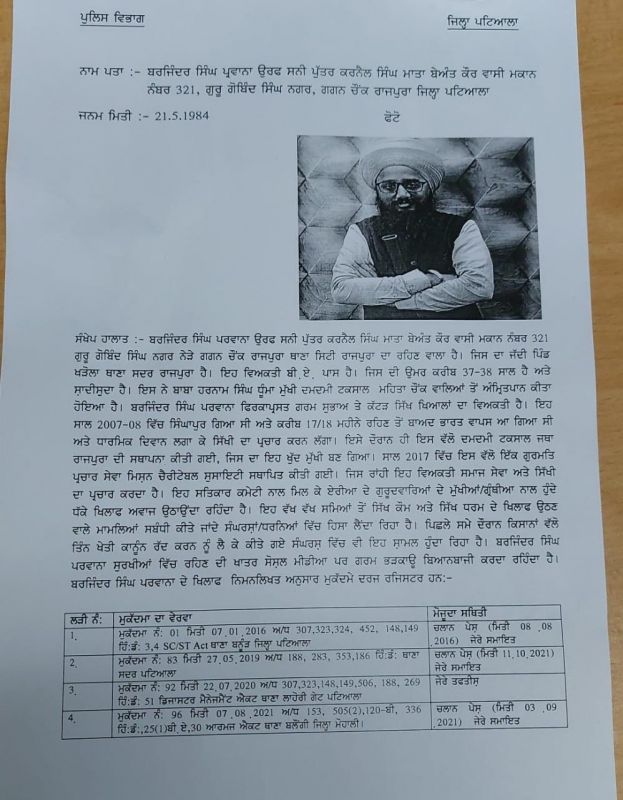 ਪੁਲਿਸ ਵਿਭਾਗ
ਜਿਲ੍ਹਾ ਪਟਿਆਲਾ
ਨਾਮ ਪਤਾ :- ਬਰਜਿੰਦਰ ਸਿੰਘ ਪ੍ਰਵਾਨਾ ਉਰਫ ਸਨੀ ਪੁੱਤਰ ਕਰਨੈਲ ਸਿੰਘ ਮਾਤਾ ਬੇਅੰਤ ਕੌਰ ਵਾਸੀ ਮਕਾਨ
ਨੰਬਰ 321, ਗੁਰੂ ਗੋਬਿੰਦ ਸਿੰਘ ਨਗਰ, ਗਗਨ ਚੌਂਕ ਰਾਜਪੁਰਾ ਜਿਲ੍ਹਾ ਪਟਿਆਲਾ
ਜਨਮ ਮਿਤੀ :- 21.5.1984
ਫੋਟੋ
ਸੰਖੇਪ ਹਾਲਾਤ :- ਬਰਜਿੰਦਰ ਸਿੰਘ ਪਰਵਾਨਾ ਉਰਫ ਸਨੀ ਪੁੱਤਰ ਕਰਨੈਲ ਸਿੰਘ ਮਾਤਾ ਬੇਅੰਤ ਕੌਰ ਵਾਸੀ ਮਕਾਨ ਨੰਬਰ 321
ਗੁਰੂ ਗੋਬਿੰਦ ਸਿੰਘ ਨਗਰ ਨੇੜੇ ਗਗਨ ਚੌਂਕ ਰਾਜਪੁਰਾ ਥਾਣਾ ਸਿਟੀ ਰਾਜਪੁਰਾ ਦਾ ਰਹਿਣ ਵਾਲਾ ਹੈ। ਜਿਸ ਦਾ ਜੱਦੀ ਪਿੰਡ
ਖੜੋਲਾ ਥਾਣਾ ਸਦਰ ਰਾਜਪੁਰਾ ਹੈ। ਇਹ ਵਿਅਕਤੀ ਬੀ.ਏ. ਪਾਸ ਹੈ। ਜਿਸ ਦੀ ਉਮਰ ਕਰੀਬ 37-38 ਸਾਲ ਹੈ ਅਤੇ
ਸ਼ਾਦੀਸ਼ੁਦਾ ਹੈ। ਇਸ ਨੇ ਬਾਬਾ ਹਰਨਾਮ ਸਿੰਘ ਧੂੰਮਾ ਮੁੱਖੀ ਦਮਦਮੀ ਟਕਸਾਲ ਮਹਿਤਾ ਚੌਂਕ ਵਾਲਿਆਂ ਤੋਂ ਅੰਮ੍ਰਿਤਪਾਨ ਕੀਤਾ
ਹੋਇਆ ਹੈ। ਬਰਜਿੰਦਰ ਸਿੰਘ ਪਰਵਾਨਾ ਫਿਰਕਾਪ੍ਰਸਤ ਗਰਮ ਸੁਭਾਅ ਤੇ ਕੱਟੜ ਸਿੱਖ ਖਿਆਲਾਂ ਦਾ ਵਿਅਕਤੀ ਹੈ। ਇਹ
ਸਾਲ 2007-08 ਵਿੱਚ ਸਿੰਘਾਪੁਰ ਗਿਆ ਸੀ ਅਤੇ ਕਰੀਬ 17/18 ਮਹੀਨੇ ਰਹਿਣ ਤੋਂ ਬਾਅਦ ਭਾਰਤ ਵਾਪਸ ਆ ਗਿਆ ਸੀ
ਅਤੇ ਧਾਰਮਿਕ ਦਿਵਾਨ ਲਗਾ ਕੇ ਸਿੱਖੀ ਦਾ ਪ੍ਰਚਾਰ ਕਰਨ ਲੱਗਾ। ਇਸੇ ਦੌਰਾਨ ਹੀ ਇਸ ਵੱਲੋ ਦਮਦਮੀ ਟਕਸਾਲ ਜਥਾ
ਰਾਜਪੁਰਾ ਦੀ ਸਥਾਪਨਾ ਕੀਤੀ ਗਈ, ਜਿਸ ਦਾ ਇਹ ਖੁੱਦ ਮੁੱਖੀ ਬਣ ਗਿਆ। ਸਾਲ 2017 ਵਿੱਚ ਇਸ ਵੱਲੋ ਇੱਕ ਗੁਰਮਤਿ
ਪ੍ਰਚਾਰ ਸੇਵਾ ਮਿਸ਼ਨ ਚੈਰੀਟੇਬਲ ਸੁਸਾਇਟੀ ਸਥਾਪਿਤ ਕੀਤੀ ਗਈ। ਜਿਸ ਰਾਂਹੀ ਇਹ ਵਿਅਕਤੀ ਸਮਾਜ ਸੇਵਾ ਅਤੇ ਸਿੱਖੀ
ਦਾ ਪ੍ਰਚਾਰ ਕਰਦਾ ਹੈ। ਇਹ ਸਤਿਕਾਰ ਕਮੇਟੀ ਨਾਲ ਮਿਲ ਕੇ ਏਰੀਆ ਦੇ ਗੁਰੂਦਵਾਰਿਆਂ ਦੇ ਮੁੱਖੀਆਂ/ਗ੍ਰੰਥੀਆ ਨਾਲ ਹੁੰਦੇ
ਧੱਕੇ ਖਿਲਾਫ ਅਵਾਜ ਉਠਾਉਂਦਾ ਰਹਿੰਦਾ ਹੈ। ਇਹ ਵੱਖ ਵੱਖ ਸਮਿਆਂ ਤੋਂ ਸਿੱਖ ਕੌਮ ਅਤੇ ਸਿੱਖ ਧਰਮ ਦੇ ਖਿਲਾਫ ਉਠਣ
ਵਾਲੇ ਮਾਮਲਿਆਂ ਸਬੰਧੀ ਕੀਤੇ ਜਾਂਦੇ ਸੰਘਰਸ਼ਾਂ/ਧਰਨਿਆਂ ਵਿੱਚ ਹਿਸਾ ਲੈਂਦਾ ਰਿਹਾ ਹੈ। ਪਿਛਲੇ ਸਮੇਂ ਦੌਰਾਨ ਕਿਸਾਨਾਂ ਵੱਲੋ
ਤਿੰਨ ਖੇਤੀ ਕਾਨੂੰਨ ਰੱਦ ਕਰਨ ਨੂੰ ਲੈ ਕੇ ਕੀਤੇ ਗਏ ਸੰਘਰਸ਼ ਵਿੱਚ ਵੀ ਇਹ ਸ਼ਾਮਲ ਹੁੰਦਾ ਰਿਹਾ ਹੈ। ਬਰਜਿੰਦਰ ਸਿੰਘ
ਪਰਵਾਨਾ ਸੁਰਖੀਆਂ ਵਿੱਚ ਰਹਿਣ ਦੀ ਖਾਤਰ ਸੋਸ਼ਲ ਮੀਡੀਆ ਪਰ ਗਰਮ ਭੜਕਾਊ ਬਿਆਨਬਾਜੀ ਕਰਦਾ ਰਹਿੰਦਾ ਹੈ।
ਬਰਜਿੰਦਰ ਸਿੰਘ ਪਰਵਾਨਾ ਦੇ ਖਿਲਾਫ ਨਿਮਨਲਿਖਤ ਅਨੁਸਾਰ ਮੁਕੱਦਮੇ ਦਰਜ ਰਜਿਸਟਰ ਹਨ:-
ਲੜੀ ਨੰ: ਮੁਕੱਦਮਾ ਦਾ ਵੇਰਵਾ ਮੌਜੂਦਾ ਸਥਿਤੀ
1. ਮੁਕੱਦਮਾ ਨੰ: 01 ਮਿਤੀ 07.01.2016 ਅ/ਧ 307,323,324, 452, 148,149 ਚਲਾਨ ਪੇਸ਼ (ਮਿਤੀ 08.08
ਹਿੰ:ਡੰ: 3,4 SC/ST Act ਥਾਣਾ ਬਨੂੰੜ ਜਿਲ੍ਹਾ ਪਟਿਆਲਾ 2016) ਜੇਰੇ ਸਮਾਇਤ
2. ਮੁਕੱਦਮਾ ਨੰ: 83 ਮਿਤੀ 27.05.2019 ਅ/ਧ 188, 283, 353,186 ਹਿੰ:ਡੰ: ਥਾਣਾ ਚਲਾਨ ਪੇਸ਼ (ਮਿਤੀ 11.10.2021)
ਸਦਰ ਪਟਿਆਲਾ ਜੇਰੇ ਸਮਾਇਤ
3. ਮੁਕੱਦਮਾ ਨੰ: 92 ਮਿਤੀ 22.07.2020 ਅ/ਧ 307,323,148,149,506, 188, 269 ਜੇਰੇ ਤਫਤੀਸ਼
ਹਿੰ:ਡੰ: 51 ਡਿਜਾਸਟਰ ਮੈਨੇਜਮੈਂਟ ਐਕਟ ਥਾਣਾ ਲਾਹੌਰੀ ਗੇਟ ਪਟਿਆਲਾ
4. ਮੁਕੱਦਮਾ ਨੰ: 96 ਮਿਤੀ 07.08.2021 ਅ/ਧ 153, 505(2),120-ਬੀ, 336 ਚਲਾਨ ਪੇਸ਼ (ਮਿਤੀ 03.09
ਹਿੰ:ਡੰ:,25(1)ਬੀ.ਏ,30 ਆਰਮਜ ਐਕਟ ਥਾਣਾ ਬਲੌਂਗੀ ਜਿਲ੍ਹਾ ਮੋਹਾਲੀ। 2021) ਜੇਰੇ ਸਮਾਇਤ